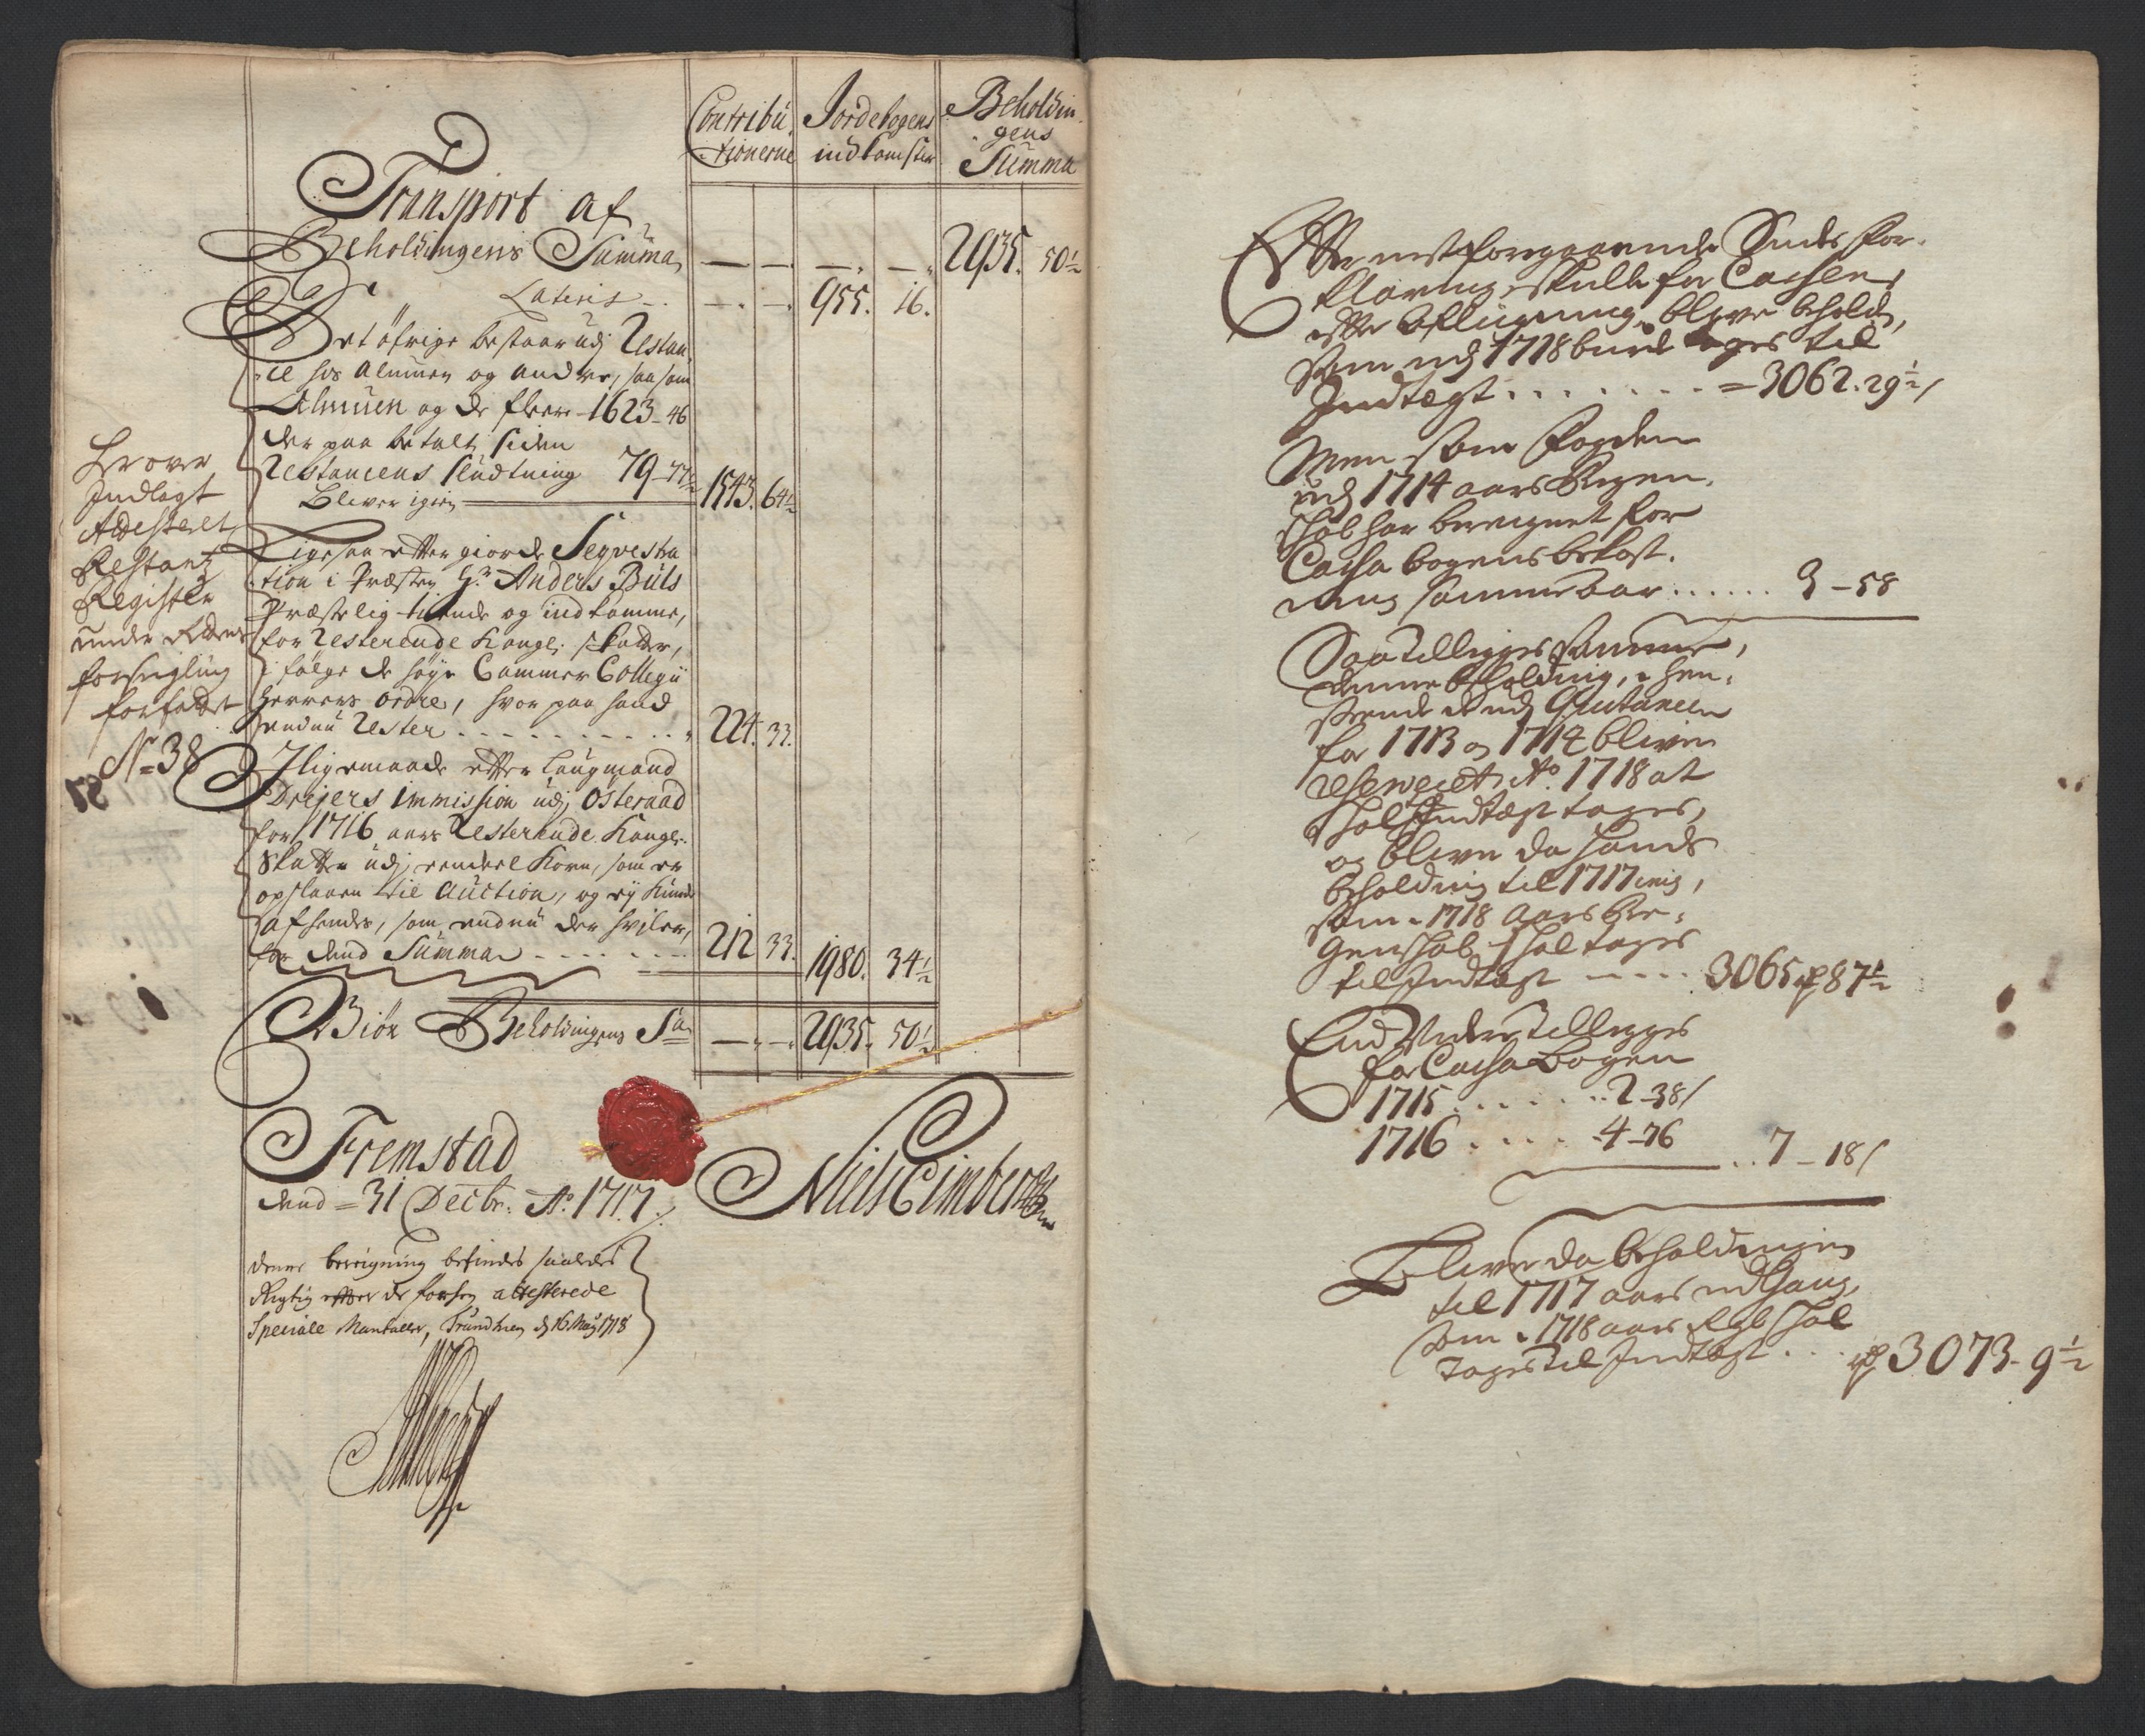 Contribu-
tionerne
Jordebogens
indkomster
Beholdin-
gens
Summa
Transport af
Beholdingens Summa — — — — 2935. 50½
Lateris — — 955. 16.
Det öfrige bestaar udj Restan-
ce hos Almuen og andre, saasom
Almuen og de fleere - 1623 - 46
der paa betalt siden
Restancens sludtning 79 - 77½
Bliver igien 1543. 64½
Ligesaa efter giorde Seqvestra
tion i Præsten Hr. Anders Buls
Præstelig tiende og indkomme,
for Resterende Kongl. skatter,
i følge de høye Cammer Collegii
Herrers ordre, hvor paa hand
endnu Rester 224. 33.
Iligemaade efter Laugmand
Drejers Immission udj Østeraad
for 1716 aars Resterende Kongl.
Skatter udj eendeel Korn, som er
opslaaen til Auction, og ej kunde
afhendes, som endnu der hviler,
for dend Summa 212 33. 1980. 34½
Biör Beholdingens Sa — — 2935. 50½
Her over
Indlagt
Attesteret
Restantz
Register
under Rettens
forseigling
forfattet
No 38
Fremstad
dend = 31 Decbr. Ao. 1717
Niels Cimber
denne bereigning befindes saaledes
Rigtig efter de forhen attesterede
Speciale Mantaller, Trundhiem d 16 Maij 1718
Efter nestforegaaende Sides for-
klaring, skulle for Cassen,
efter afligning, blive behold,
som udj 1718 burde tages til
Indtægt = 3062. 29½
Men som Fogden
udj 1714 aars Regen-
skab har bereignet for
Cassa bogens bekost-
ning samme aar 3 - 58
Saa tillegges samme,
denne beholding, i hen-
seende at udj Qvitancen
for 1713 og 1714 bliver
reserveret Ao. 1718 at
skal Indtægt tages,
og bliver da hands
beholdning til 1717
som i 1718 Aars Re-
genskab skal tages
til Indtægt 3065 rd 87½
End videre tillegges
for Cassa Bogen
1715 2 - 38
1716 4 - 76 7 - 18
Bliver da beholdningen
til 1717 aars udgang,
som i 1718 aars Rgbl skal
tages til Indtægt rd 3073 - 9½